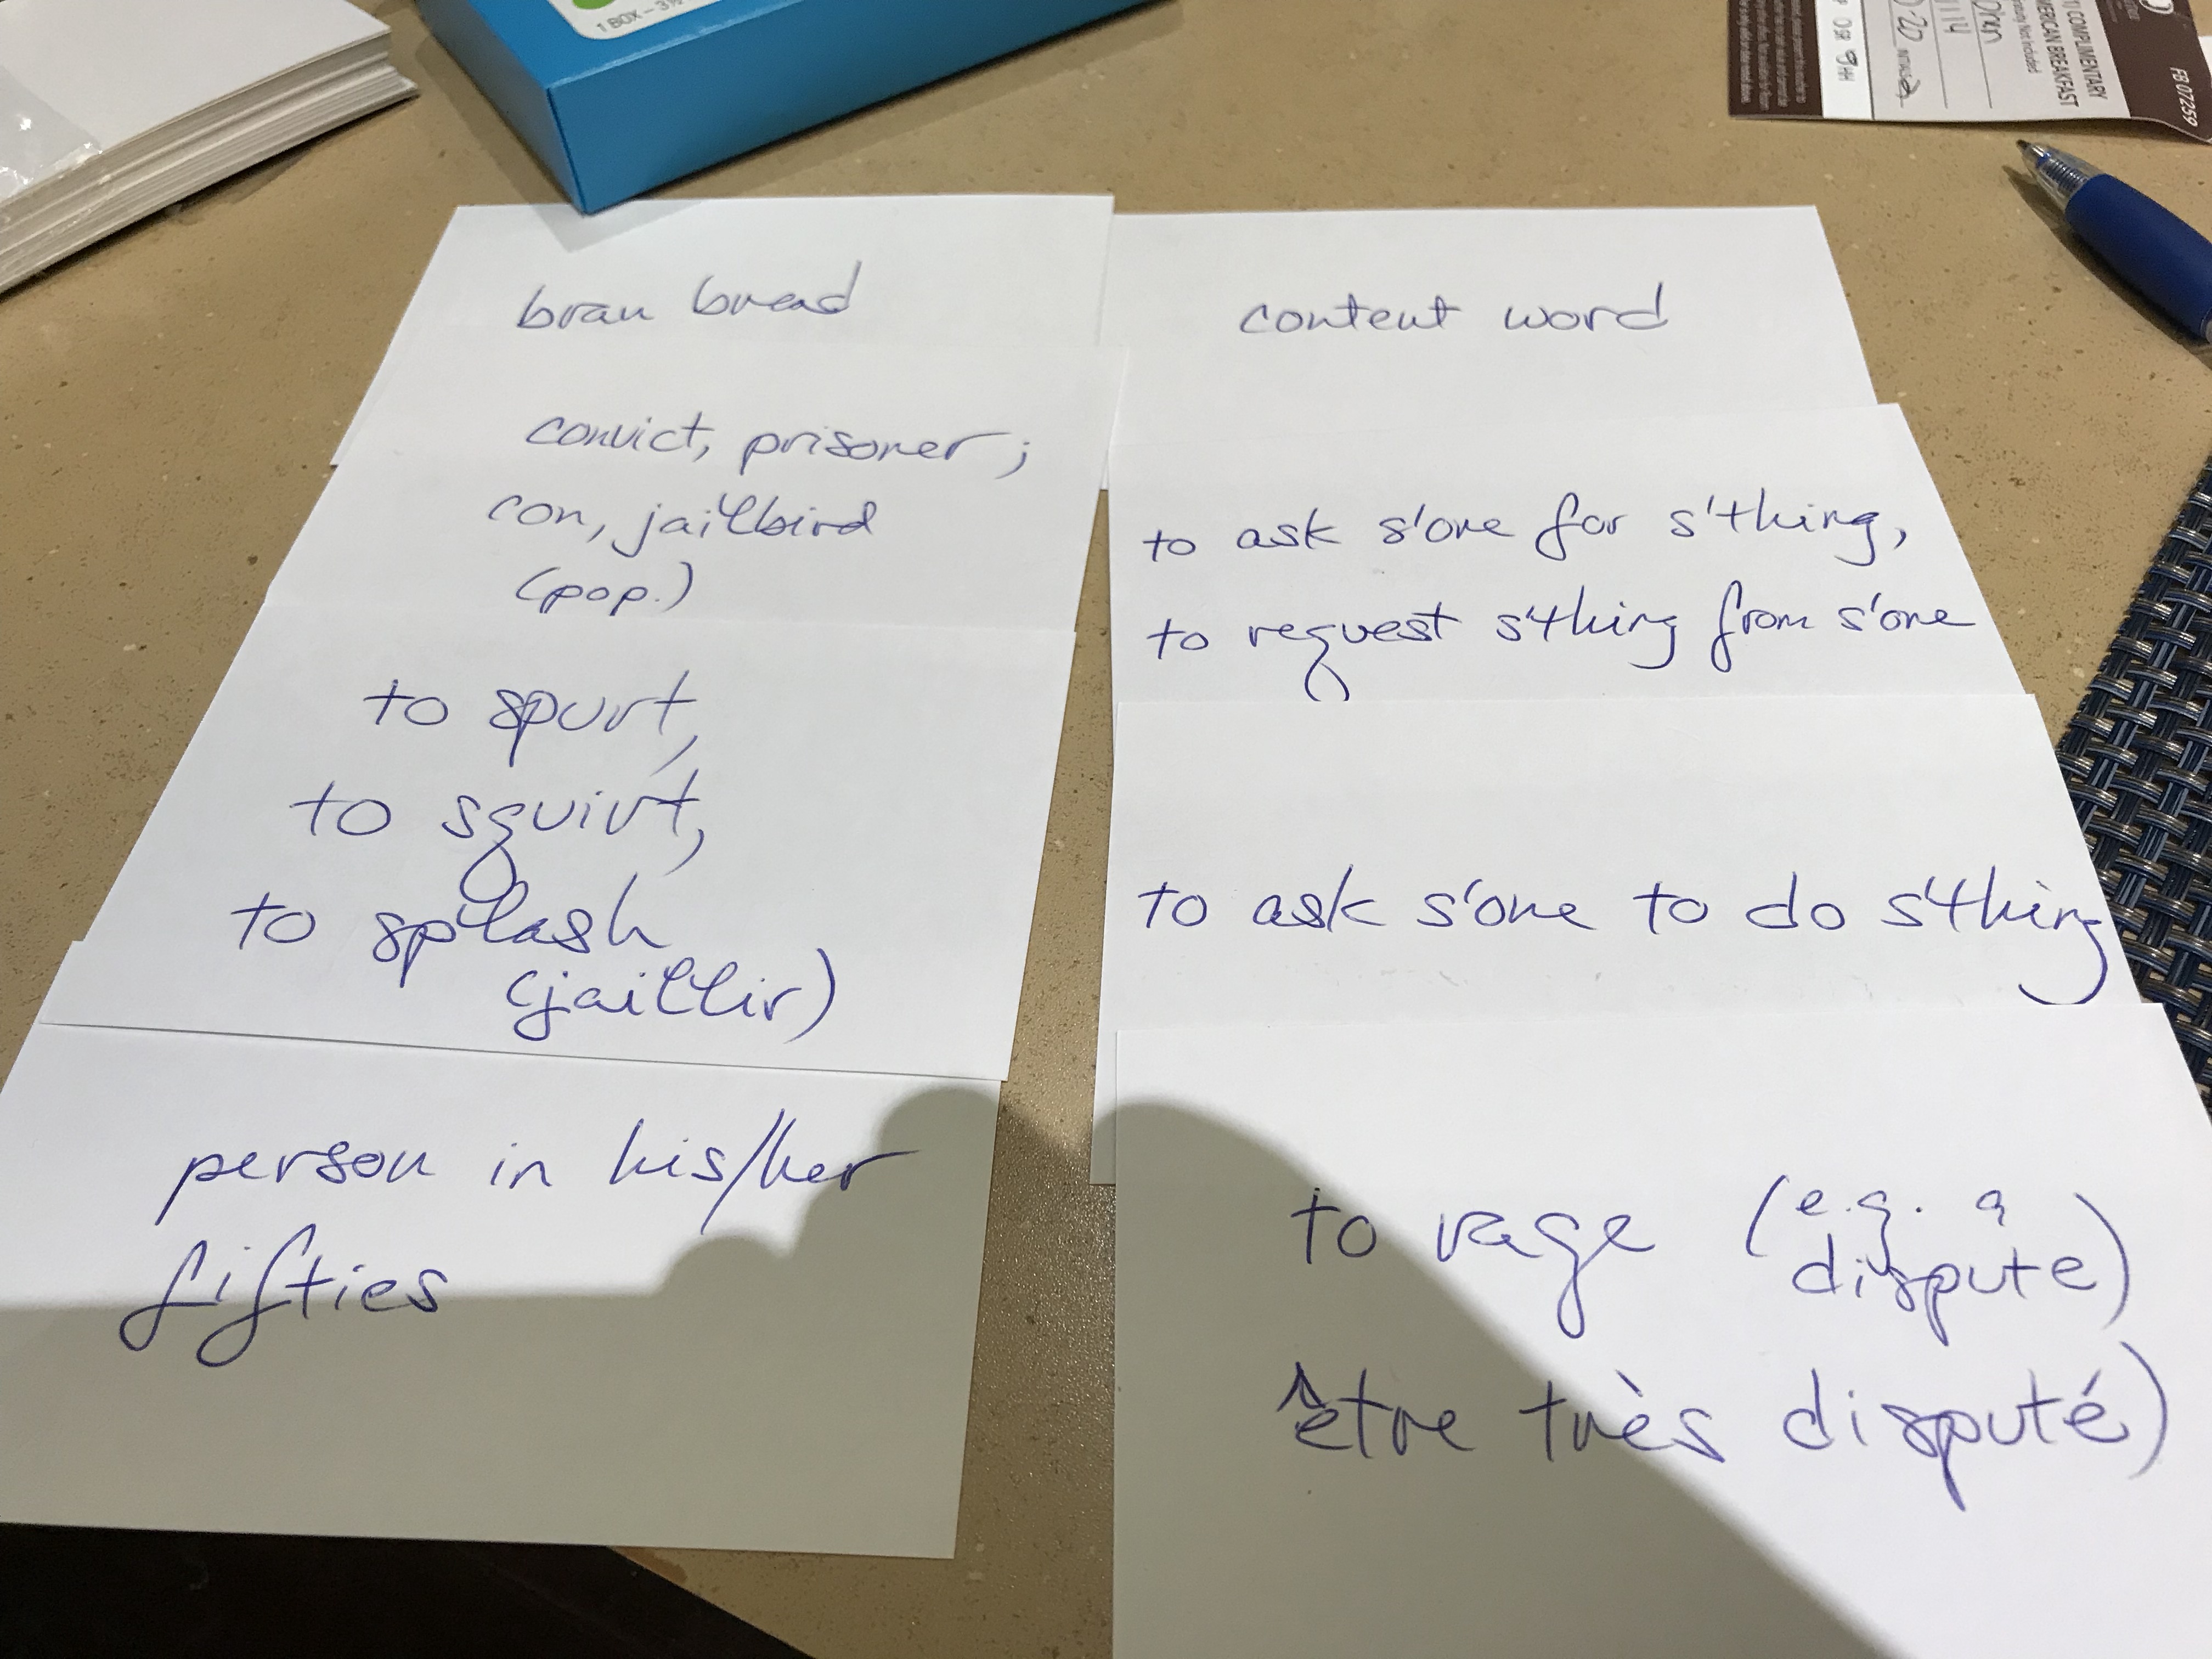 1 BOX – 3½
TO COMPLIMENTARY
AMERICAN BREAKFAST
FB 07259
bran bread
convict, prisoner;
con, jailbird
(pop.)
to spurt,
to squirt,
to splash
(jaillir)
person in his/her
fifties
content word
to ask s'one for s'thing,
to request s'thing from s'one
to ask s'one to do s'thing
to rage (e.g. a
dispute)
être très disputé)